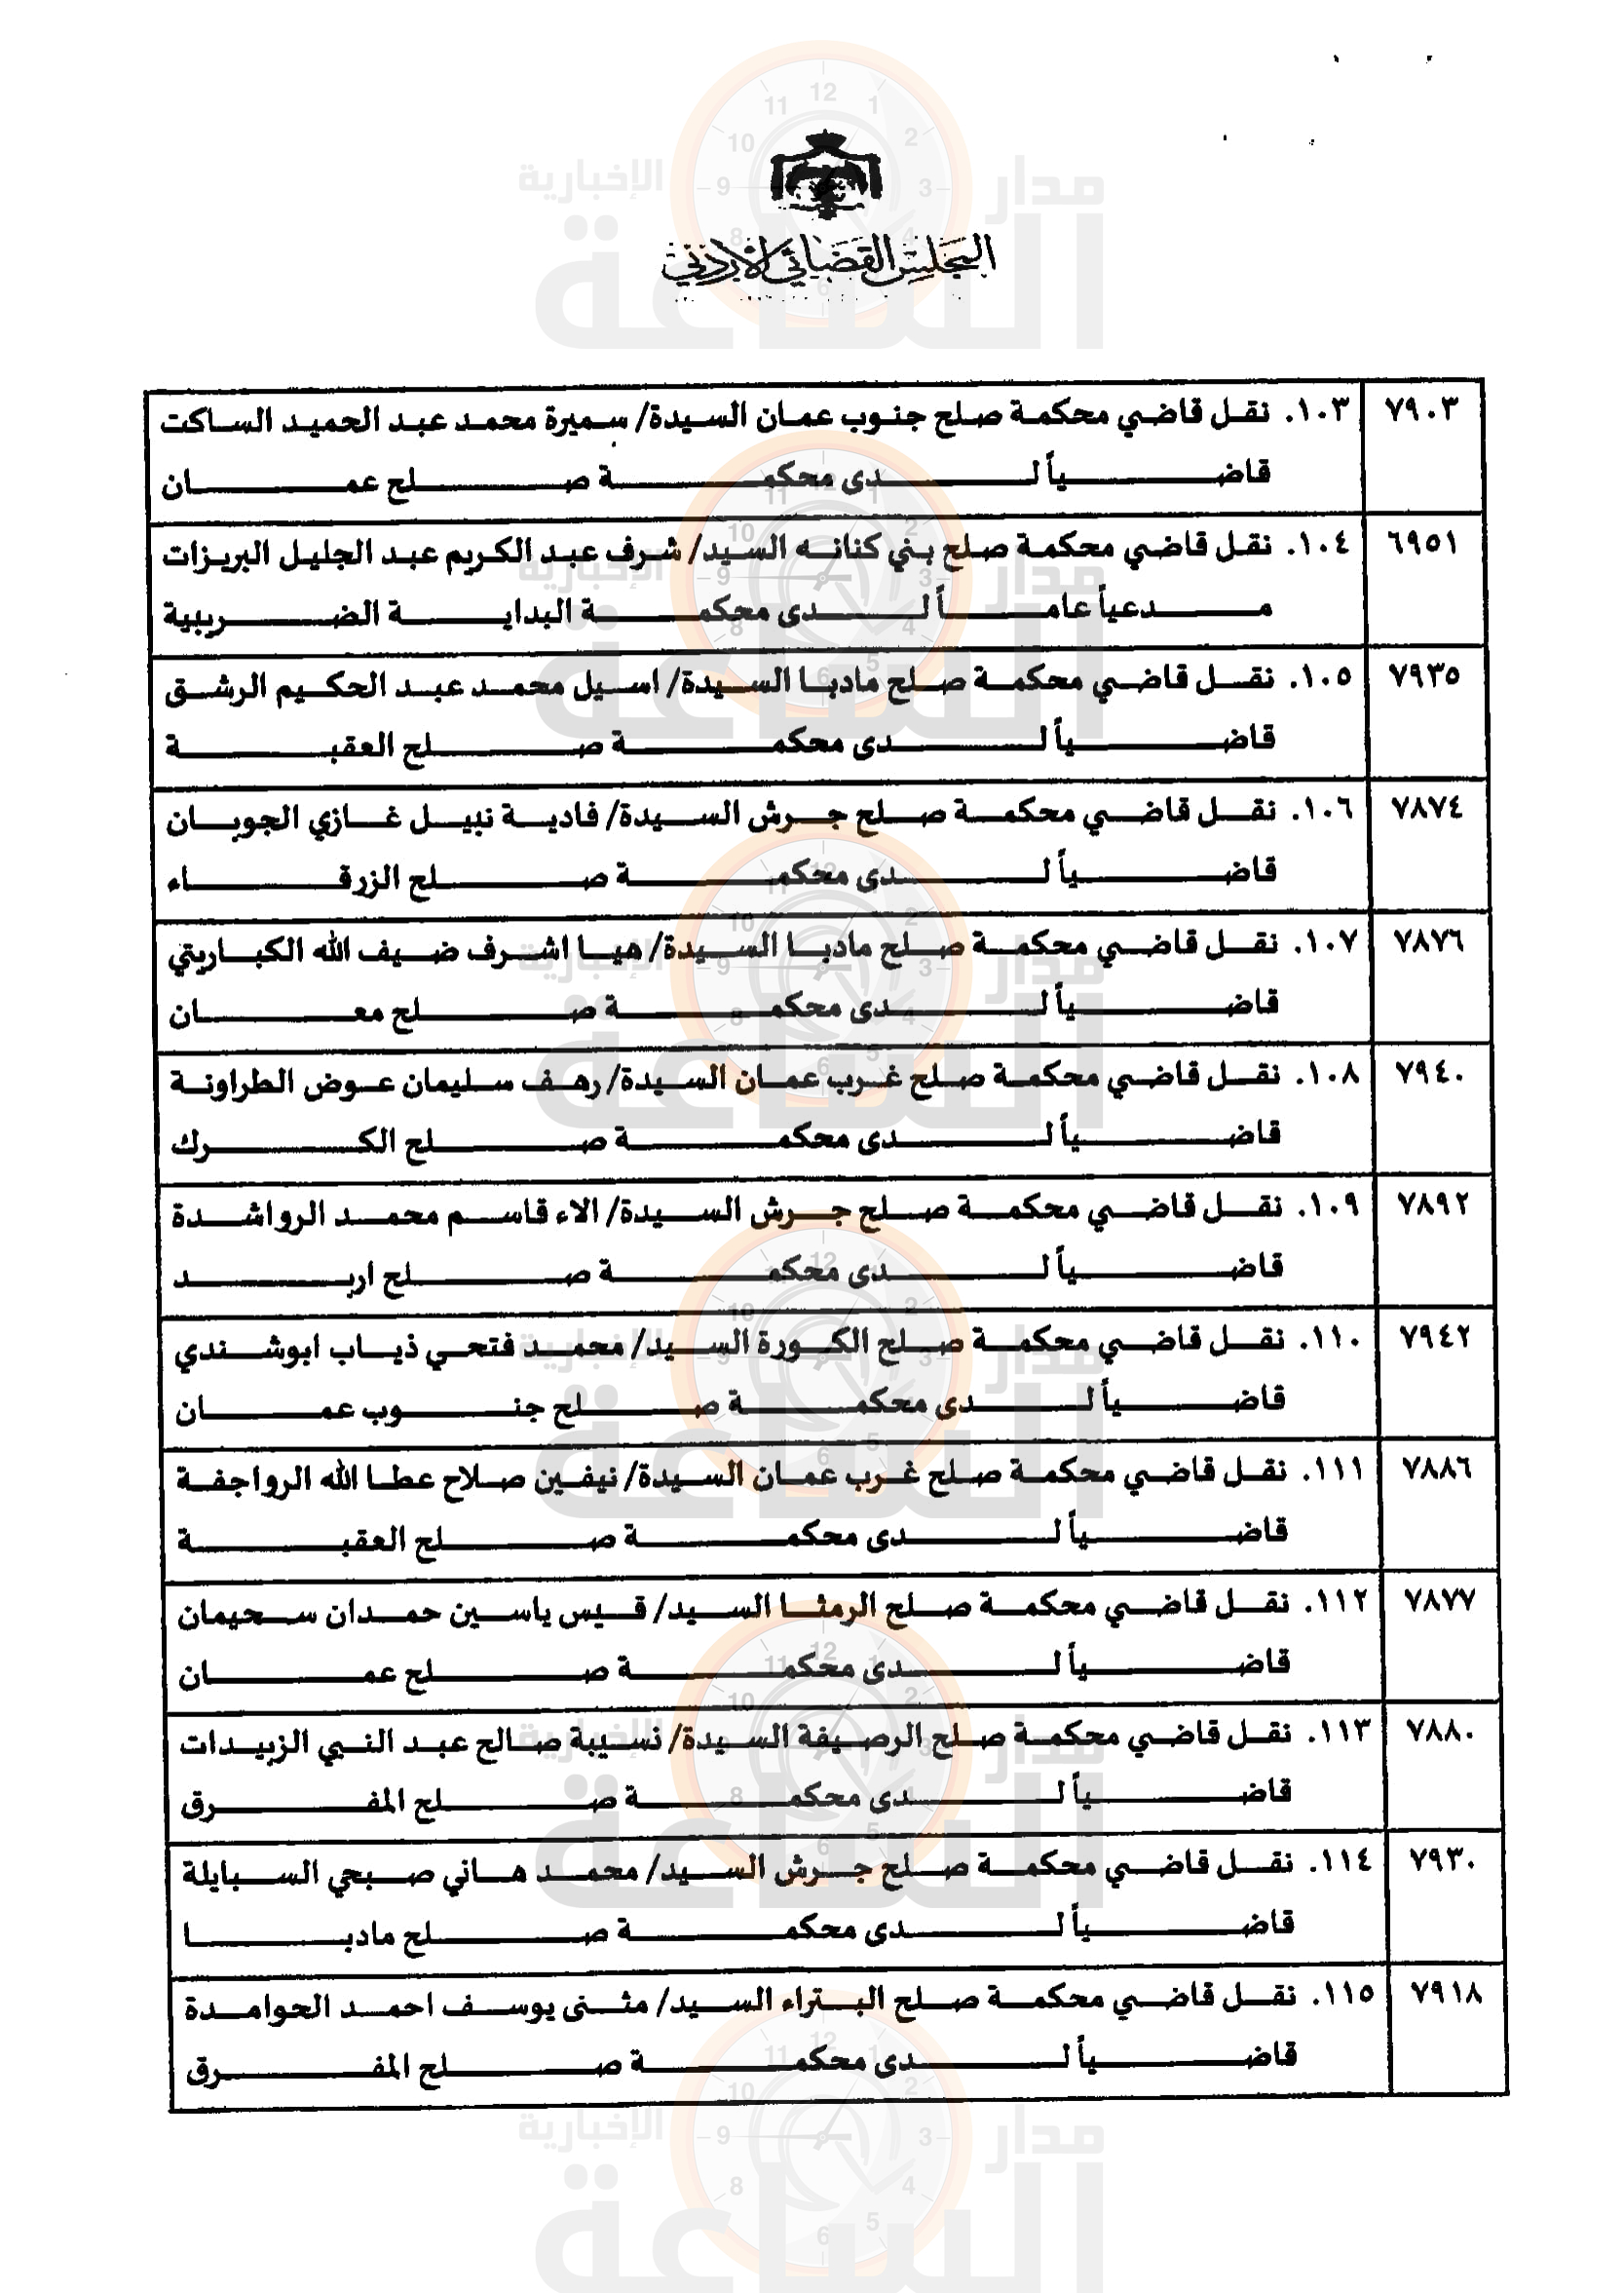 المجلس القضائي الأردني
٧٩٠٣ ١٠٣. نقل قاضي محكمة صلح جنوب عمان السيدة/ سميرة محمد عبد الحميد الساكت
قاضياً لدى محكمة صلح عمان
٦٩٥١ ١٠٤. نقل قاضي محكمة صلح بني كنانه السيد/ شرف عبد الكريم عبد الجليل البريزات
مدعياً عاماً لدى محكمة البداية الضريبية
٧٩٣٥ ١٠٥. نقل قاضي محكمة صلح مادبا السيدة/ اسيل محمد عبد الحكيم الرشق
قاضياً لدى محكمة صلح العقبة
٧٨٧٤ ١٠٦. نقل قاضي محكمة صلح جرش السيدة/ فادية نبيل غازي الجوبان
قاضياً لدى محكمة صلح الزرقاء
٧٨٧٦ ١٠٧. نقل قاضي محكمة صلح مادبا السيدة/ هيا اشرف ضيف الله الكباريتي
قاضياً لدى محكمة صلح معان
٧٩٤٠ ١٠٨. نقل قاضي محكمة صلح غرب عمان السيدة/ رهف سليمان عوض الطراونة
قاضياً لدى محكمة صلح الكرك
٧٨٩٢ ١٠٩. نقل قاضي محكمة صلح جرش السيدة/ الاء قاسم محمد الرواشدة
قاضياً لدى محكمة صلح اربد
٧٩٤٢ ١١٠. نقل قاضي محكمة صلح الكورة السيد/ محمد فتحي ذياب ابوشندي
قاضياً لدى محكمة صلح جنوب عمان
٧٨٨٦ ١١١. نقل قاضي محكمة صلح غرب عمان السيدة/ نيفين صلاح عطا الله الرواجفة
قاضياً لدى محكمة صلح العقبة
٧٨٧٧ ١١٢. نقل قاضي محكمة صلح الرمثا السيد/ قيس ياسين حمدان سحيمان
قاضياً لدى محكمة صلح عمان
٧٨٨٠ ١١٣. نقل قاضي محكمة صلح الرصيفة السيدة/ نسيبة صالح عبد النبي الزبيدات
قاضياً لدى محكمة صلح المفرق
٧٩٣٠ ١١٤. نقل قاضي محكمة صلح جرش السيد/ محمد هاني صبحي السبايلة
قاضياً لدى محكمة صلح مادبا
٧٩١٨ ١١٥. نقل قاضي محكمة صلح البتراء السيد/ مثنى يوسف احمد الحوامدة
قاضياً لدى محكمة صلح المفرق
مدار الساعة الإخبارية